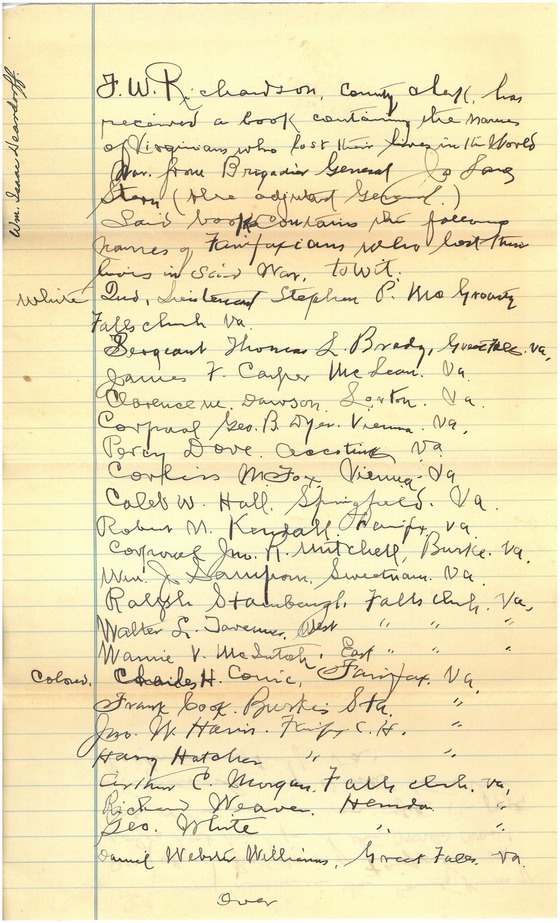 Wm. Isaac Deardorff.
F. W. Richardson, County clerk, has
received a book containing the names
of Virginians who lost their lives in the World
War. from Brigadier General Jo Lane
Stern (the adjutant General.)
Said book contains the following
names of Fairfaxians who lost their
lives in said War, to wit.
White 2nd, Lieutenant Stephen P. McGroarty
Falls church Va.
Sergeant Thomas L. Brady, Great Falls. Va,
James F. Carper McLean. Va
Clarence M. Dawson. Lorton. Va.
Corporal Geo. B. Dyer. Vienna. Va,
Percy Dove. Accotink Va.
Corliss M. Fox, Vienna Va
Caleb W. Hall. Springfield. Va.
Robert N. Kendall. Fairfx, Va.
Corporal Jno. R. Mitchell, Burke. Va.
Wm. J. Sampson, Sweetnam. Va.
Ralph Stambaugh, Falls church. Va,
Walter L. Tavenner, West " " "
Wannie V. McIntosh, East " " "
Colored. Charles H. Conic, Fairfax. Va.
Frank Cook. Burkes Sta. "
Jno. W. Harris. Fairfx C. H. "
Harry Hatcher " "
Arthur C. Morgan. Falls church. Va,
Richard Weaver. Herndon "
Geo. White " "
Daniel Webster Williams, Great Falls. Va.
Over